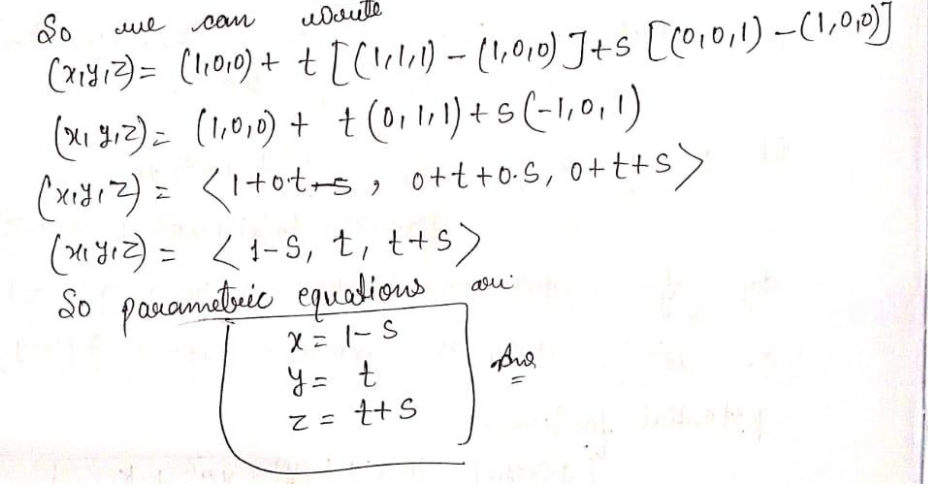 So we can write
(x,y,z) = (1,0,0) + t [(1,1,1) - (1,0,0)] + s [(0,0,1) - (1,0,0)]
(x, y, z) = (1,0,0) + t (0,1,1) + s (-1,0,1)
(x,y,z) = <1+0.t-s, 0+t+0.s, 0+t+s>
(x,y,z) = <1-s, t, t+s>
So parametric equations are
x = 1-s
y = t
z = t+s
Ans